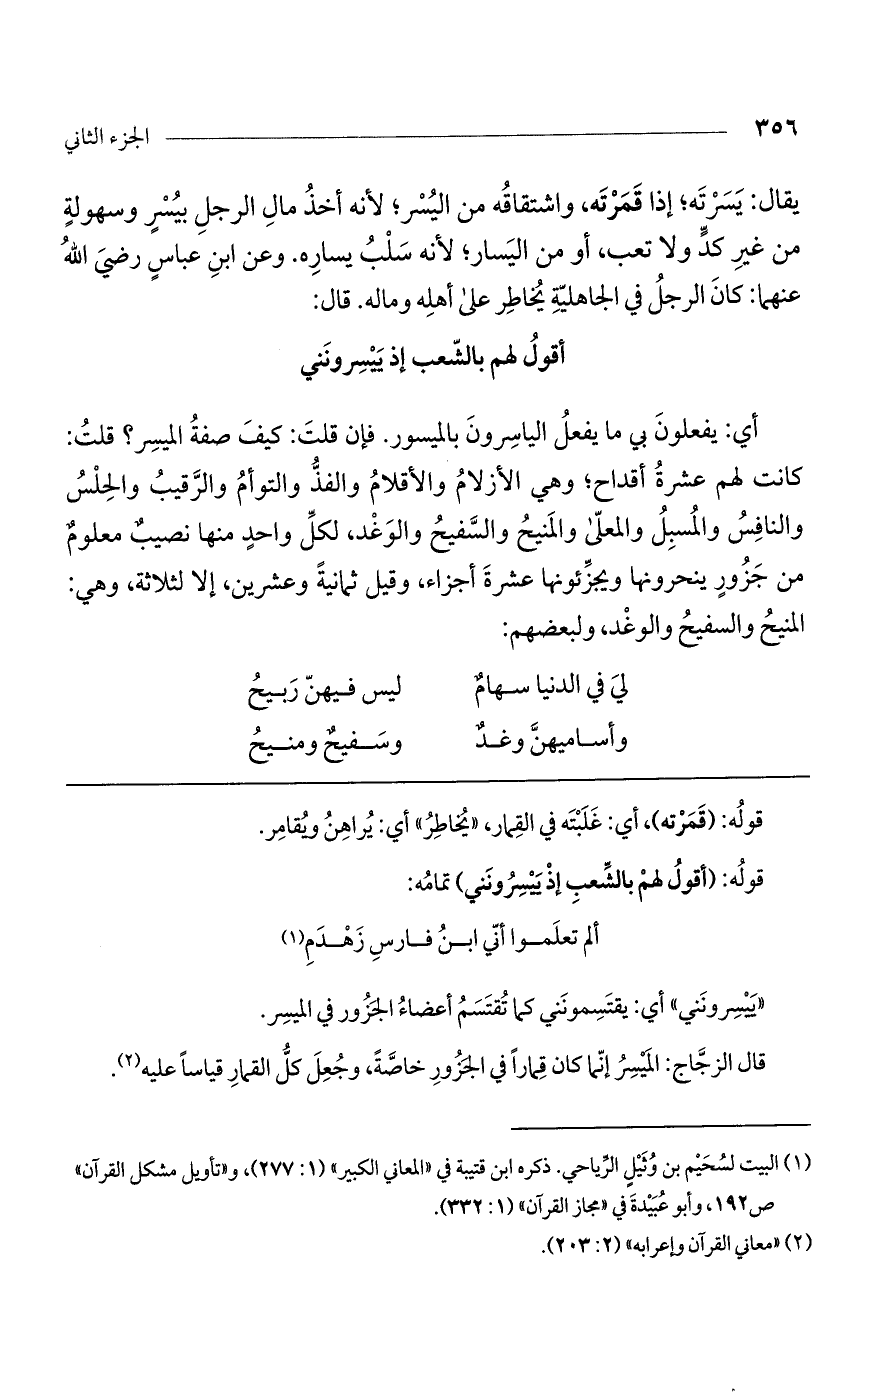 ٣٥٦ الجزء الثاني
يقال: يَسَرْتَه؛ إذا قَمَرْتَه، واشتقاقُه من اليُسْر؛ لأنه أخذُ مالِ الرجلِ بيُسْرٍ وسهولةٍ
من غيرِ كدٍّ ولا تعب، أو من اليَسار؛ لأنه سَلْبُ يسارِه. وعن ابنِ عباسٍ رضيَ اللهُ
عنهما: كانَ الرجلُ في الجاهليّةِ يُخاطِر علىٰ أهلِه وماله. قال:
أقولُ لهم بالشّعب إذ يَيْسِرونَني
أي: يفعلونَ بي ما يفعلُ الياسِرونَ بالميسور. فإن قلتَ: كيفَ صفةُ الميسِر؟ قلتُ:
كانت لهم عشرةُ أقداح؛ وهي الأزلامُ والأقلامُ والفذُّ والتوأمُ والرَّقيبُ والحِلْسُ
والنافِسُ والمُسبِلُ والمعلّىٰ والمَنيحُ والسَّفيحُ والوَغْد، لكلِّ واحدٍ منها نصيبٌ معلومٌ
من جَزُورٍ ينحرونها ويجزِّئونها عشرةَ أجزاء، وقيل ثمانيةً وعشرين، إلا لثلاثة، وهي:
المنيحُ والسفيحُ والوغْد، ولبعضهم:
ليَ في الدنيا سـهامٌ ليس فـيهنّ رَبـيحُ
وأسـاميهنَّ وغـدٌ وسَـفيحٌ ومنـيحُ
قولُه: (قَمَرْته)، أي: غَلَبْتَه في القِمار، «يُخاطِرُ» أي: يُراهِنُ ويُقامِر.
قولُه: (أقولُ لهمْ بالشِّعبِ إذْ يَيْسِرُونَني) تمامُه:
ألم تعلَمـوا أنّي ابـنُ فـارسِ زَهْـدَمِ(١)
«يَيْسِرونَني» أي: يقتَسِمونَني كما تُقتَسَمُ أعضاءُ الجَزُور في الميسِر.
قال الزجَّاج: المَيْسِرُ إنّما كان قِماراً في الجَزُورِ خاصَّةً، وجُعِلَ كلُّ القمارِ قياساً عليه(٢).
(١) البيت لسُحَيْم بن وُثَيْلٍ الرِّياحي. ذكره ابن قتيبة في «المعاني الكبير» (١: ٢٧٧)، و«تأويل مشكل القرآن»
ص١٩٢، وأبو عُبَيْدةَ في «مجاز القرآن» (١: ٣٣٢).
(٢) «معاني القرآن وإعرابه» (٢: ٢٠٣).